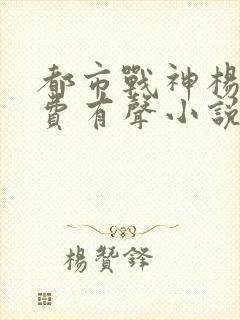 都市戰神楊
費有聲小說
楊贊鋒